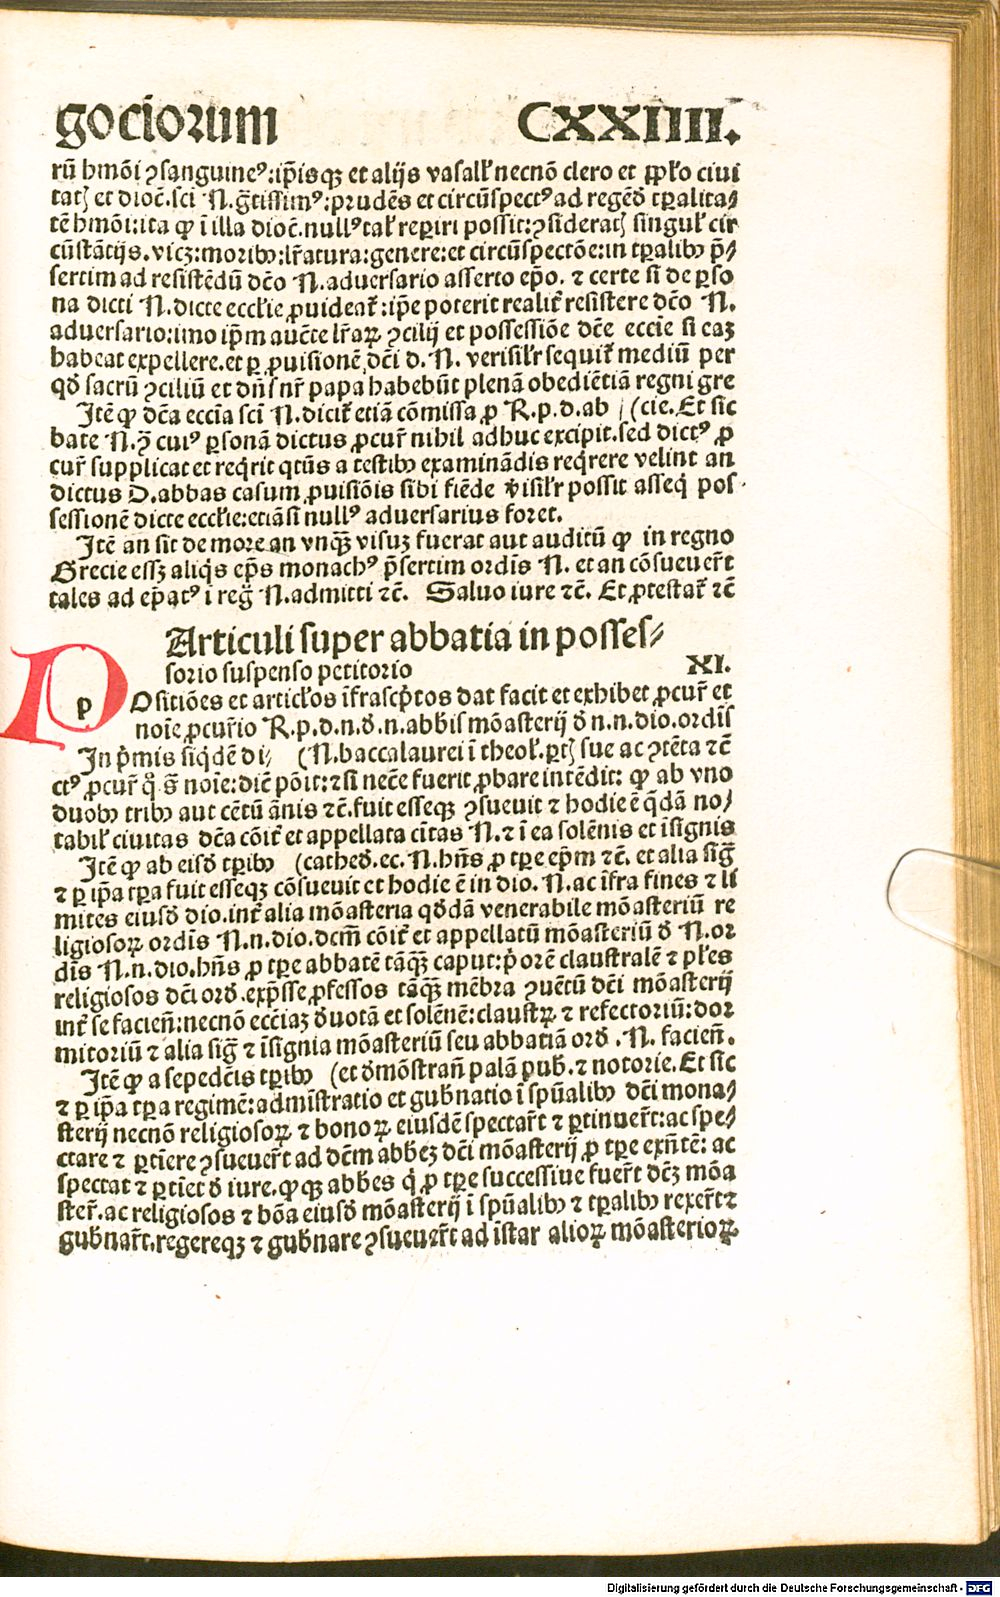 gociorum CXXIIII.
rū hmōi ꝯsanguineꝰ:ip̄isqꝫ et alijs vasall̛ necnō clero et ꝓpl̛o ciui
tatꝭ et dioc̄.sci N.gr̄tissimꝰ:prudēs et circūspectꝰ ad regēdō tꝑalita⸗
tē hmōi:ita ꝙ ī illa dioc̄.nullꝰ tal̛ reꝑiri possit:ꝯsideratꝭ singul̛ cir
cūstātijs.vicꝫ:moribꝰ:lr̄atura:genere:et circūspectōe:in tꝑalibꝰ p̄⸗
sertim ad resistēdū dc̄o N.aduersario asserto ep̄o. ⁊ certe si de ꝑso
na dicti N.dicte eccl̛ie ꝓuideat̛:ip̄e poterit realit̛ resistere dc̄o N.
aduersario:imo ip̄m auc̄te lr̄aꝝ ꝯcilij et possessiōe dc̄e eccie si eaꝫ
habeat expellere.et ꝑ ꝓuisionē dc̄i d.N. verisil̛r sequit̛ mediū per
qd̛ sacrū ꝯciliū et dn̄s nr̄ papa habebūt plenā obediētiā regni gre
Itē ꝙ dc̄a eccīa sci N.dicit̛ etiā cōmissa ꝓ R.p.d.ab / (cie.Et sic
bate N.ꝯ̄ cuiꝰ ꝑsonā dictus ꝓcur̄ nihil adhuc excipit.sed dictꝰ ꝓ
cur̄ supplicat et req̄rit qtūs a testibꝰ examinādis req̄rere velint an
dictus D.abbas casum ꝓuisiōis sibi fiēde v̛isil̛r possit asseq̄ pos⸗
sessionē dicte eccl̛ie:etiā si nullꝰ aduersarius foret.
Itē an sit de more an vnqꝫ̄ visuꝫ fuerat aut auditū ꝙ in regno
Grecie essꝫ aliq̄s ep̄s monachꝰ p̄sertim ordīs N. et an cōsueuer̄t
tales ad ep̄atꝰ ī reḡ N.admitti ⁊c̄. Saluo iure ⁊c̄. Et ꝓtestat̛ ⁊c̄
Articuli super abbatia in posses⸗
sorio suspenso petitorio XI.
p Ositiōes et articl̛os īfrascp̄tos dat facit et exhibet ꝓcur̄ et
noīe ꝓcur̄io R.p.d.n.d̛.n.abb̄is mōasterij d̛ n.n.dio.ordīs
In p̄mis siqd̄ē di⸗ (N.baccalaurei ī theol̛.ꝑtꝭ sue ac ꝯtēta ⁊c̄
ctꝰ ꝓcur̄ qͦ s̄ noīe:dic̄ pōit:⁊ si necē fuerit ꝓbare intēdit: ꝙ ab vno
duobꝰ tribꝰ aut cētū ānis ⁊c̄.fuit esseqꝫ ꝯsueuit ⁊ hodie ē q̄dā no⸗
tabil̛ ciuitas dc̄a cōit̛ et appellata cītas N.⁊ ī ea solēnis et īsignis
Itē ꝙ ab eisd̛ tꝑibꝰ (cathed̛.ec.N.hn̄s ꝓ tꝑe ep̄m ⁊c̄. et alia siḡ
⁊ ꝑ ip̄a tꝑa fuit esseqꝫ cōsueuit et hodie ē in dio.N.ac īfra fines ⁊ li
mites eiusd̛ dio.int̛ alia mōasteria qd̛dā venerabile mōasteriū re
ligiosoꝝ ordīs N.n.dio.dcm̄ cōit̛ et appellatū mōasteriū d̛ N.or
dīs N.n.dio.hn̄s ꝓ tꝑe abbatē tāqꝫ̄ caput:p̄orē claustralē ⁊ pl̛es
religiosos dc̄i ord̛.exp̄sse ꝓfessos tāqꝫ̄ mēbra ꝯuētū dc̄i mōasterij
int̛ se facien̄:necnō ecc̄iaꝫ d̛uotā et solēnē:claustꝝ ⁊ refectoriū:dor
mitoriū ⁊ alia siḡ ⁊ īsignia mōasteriū seu abbatiā ord̛.N. facien̄.
Itē ꝙ a sepedc̄is tꝑibꝰ (et d̛mōstran̄ palā pub̛.⁊ notorie.Et sic
⁊ ꝑ ip̄a tꝑa regimē:admīstratio et gub̛natio ī sp̄ualibꝰ dc̄i mona⸗
sterij necnō religiosoꝝ ⁊ bonoꝝ eiusdē spectar̄t ⁊ ꝑtinuer̄t:ac spe⸗
ctare ⁊ ꝑtīere ꝯsueuer̄t ad dc̄m abb̄eꝫ dc̄i mōasterij ꝓ tꝑe exn̄tē: ac
spectat ⁊ ꝑtīet d̛ iure.ꝙqꝫ abb̄es q̄ ꝓ tꝑe successiue fuer̄t dc̄ꝫ mōa
ster̄.ac religiosos ⁊ bōa eiusd̛ mōasterij ī sp̄ualibꝰ ⁊ tꝑalibꝰ rexer̄t ⁊
gub̛nar̄t.regereqꝫ ⁊ gub̛nare ꝯsueuer̄t ad īstar alioꝝ mōasterioꝝ
Digitalisierung gefördert durch die Deutsche Forschungsgemeinschaft - DFG